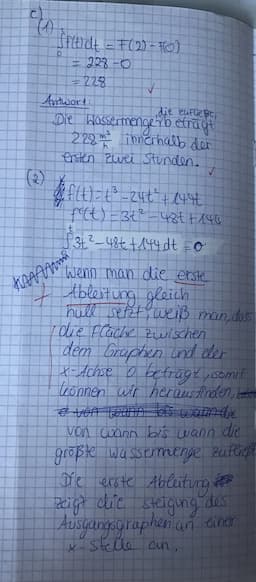 c)
(1)
2
∫f(t)dt = F(2) - F(0)
0
= 228 - 0
= 228
Antwort:
die zufließt,
Die Wassermenge beträgt
228 m³/h innerhalb der
ersten zwei Stunden.
(2)
f(t) = t³ - 24t² + 144t
f'(t) = 3t² - 48t + 144
∫3t² - 48t + 144 dt = 0
Wenn man die erste
Ableitung gleich
null setzt, weiß man, das
die Fläche zwischen
dem Graphen und der
x-Achse 0 beträgt, somit
können wir herausfinden,
von wann bis wann die
größte Wassermenge zufließt
Die erste Ableitung
zeigt die Steigung des
Ausgangsgraphen an einer
x-Stelle an.